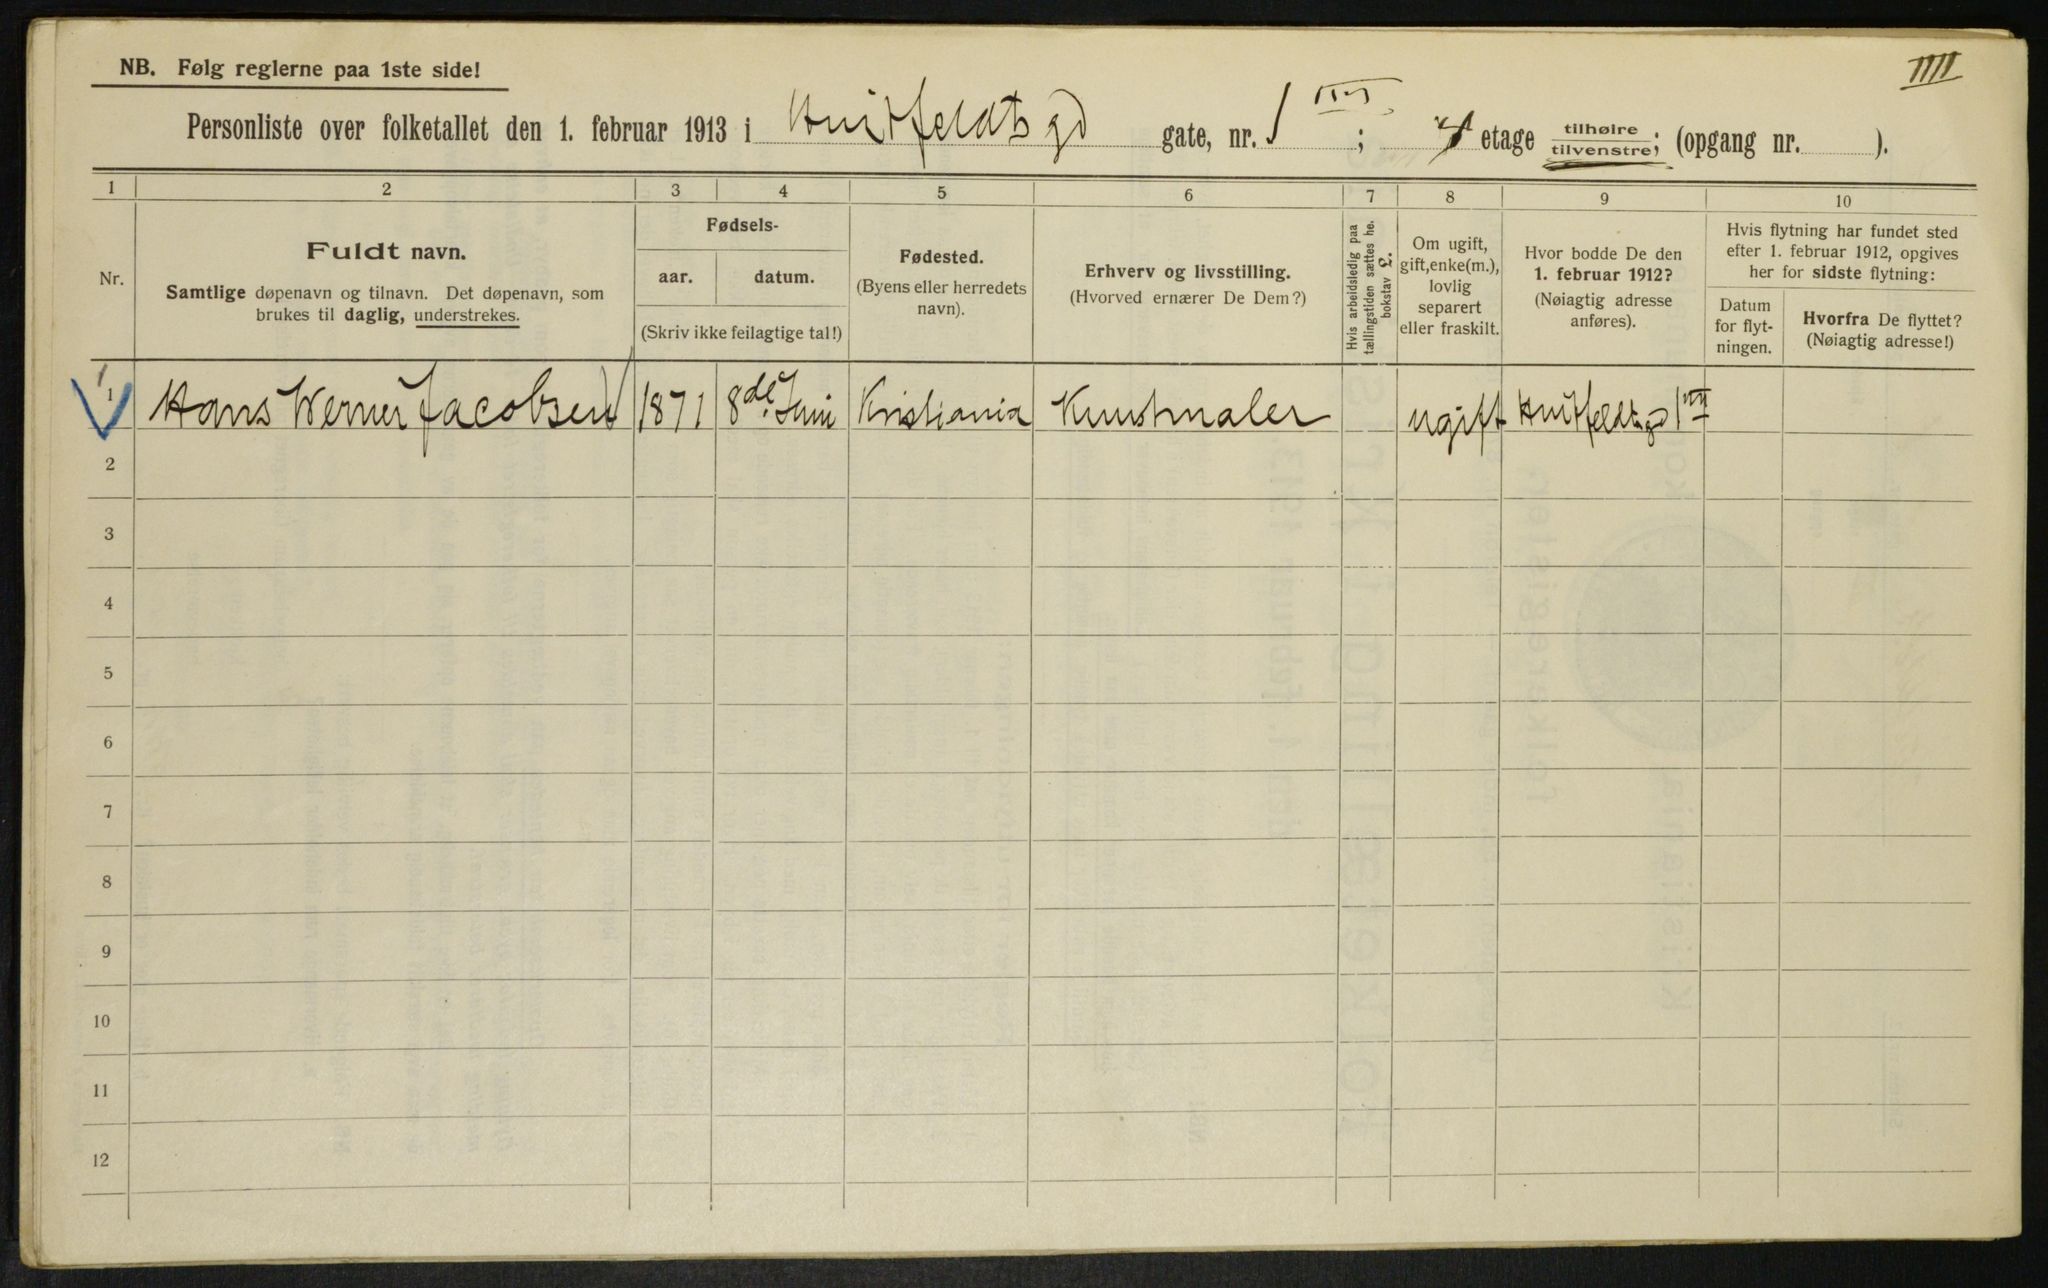 NB. Følg reglerne paa 1ste side!
IIIII
Personliste over folketallet den 1. februar 1913 i Huitfeldts gd gate, nr. 1 ; etage tilhøire tilvenstre; (opgang nr. ).
1 2 3 4 5 6 7 8 9 10
Nr.
Fuldt navn.
Samtlige døpenavn og tilnavn. Det døpenavn, som
brukes til daglig, understrekes.
Fødsels-
aar. datum.
(Skriv ikke feilagtige tal!)
Fødested.
(Byens eller herredets
navn).
Erhverv og livsstilling.
(Hvorved ernærer De Dem?)
Hvis arbeidsledig paa
tællingstiden sættes he.
bokstav L.
Om ugift,
gift, enke(m.),
lovlig
separert
eller fraskilt.
Hvor bodde De den
1. februar 1912?
(Nøiagtig adresse
anføres).
Hvis flytning har fundet sted
efter 1. februar 1912, opgives
her for sidste flytning:
Datum
for flyt-
ningen.
Hvorfra De flyttet?
(Nøiagtig adresse!)
1 Hans Werner Jacobsen 1871 8de Juni Kristiania Kunstmaler ugift Huitfeldts gd 1
2
3
4
5
6
7
8
9
10
11
12